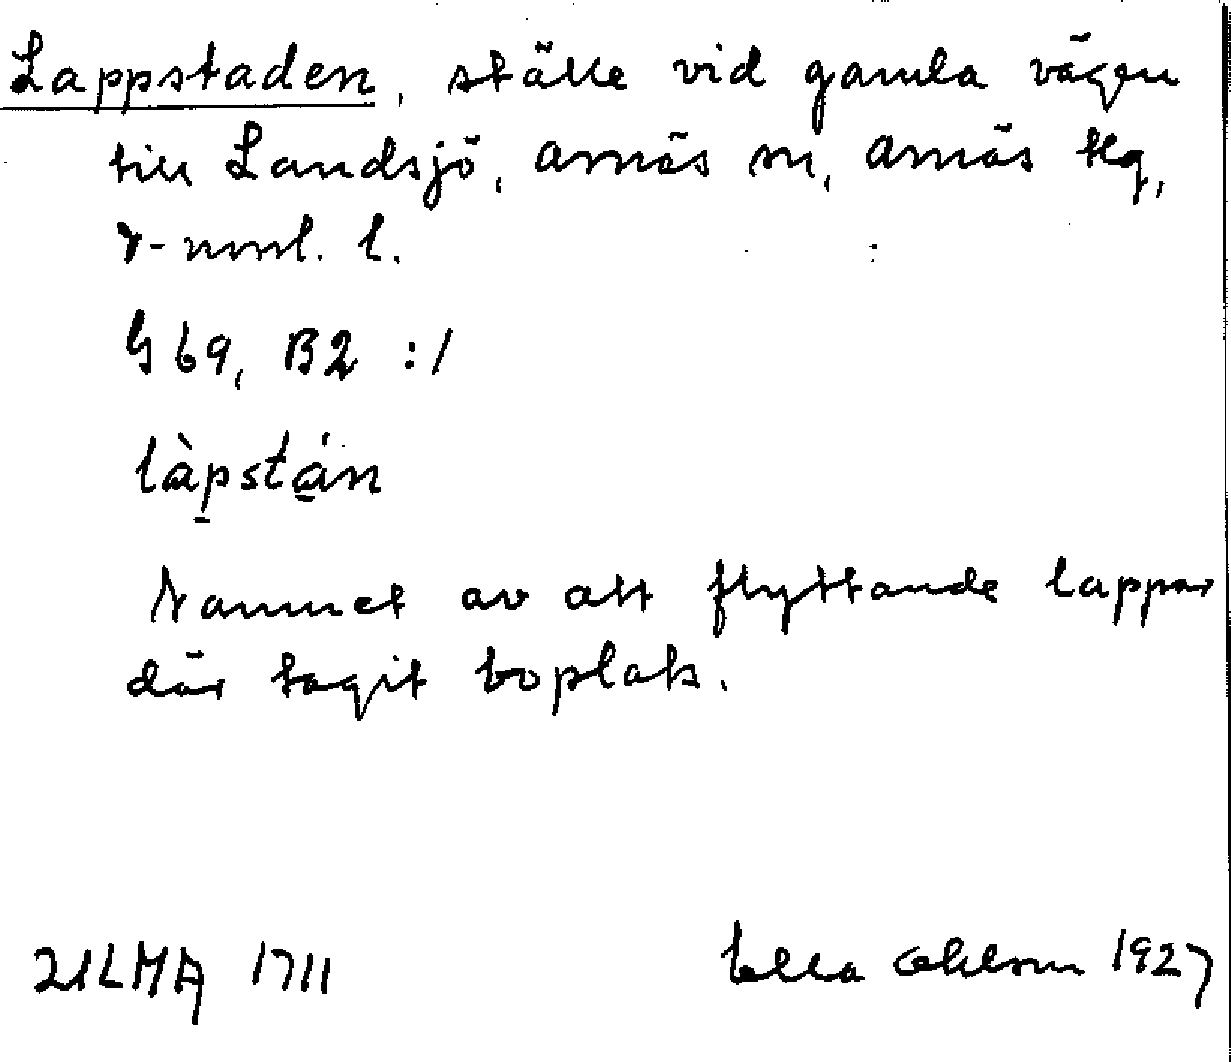 Lappstaden, ställe vid gamla vägen
till Landsjö, Arnäs sn, Arnäs tlg,
V-nml. l.
G 69, B2 :1
làpstán
Namnet av att flyttande lappar
där tagit boplats.
ULMA 1711
Ella Ohlson 1927